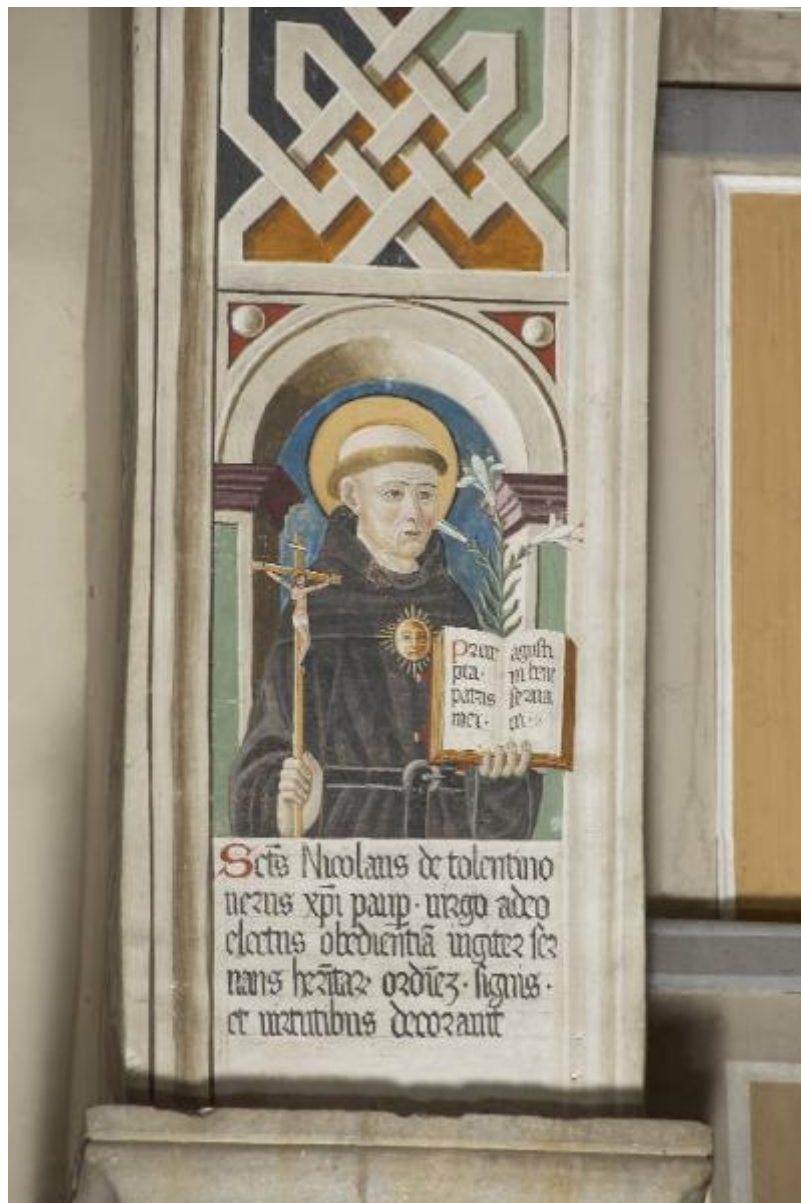 Precep
pta·
patris
mei·
agusti
ni bene
serua
ui··
Sct̄s Nicolaus de tolentino
uerus xp̄i paup̱· uirgo adeo
electus obedient̄iā iugiter ser
uans her̄itar ordīez· signis·
et uirtutibus decorauit